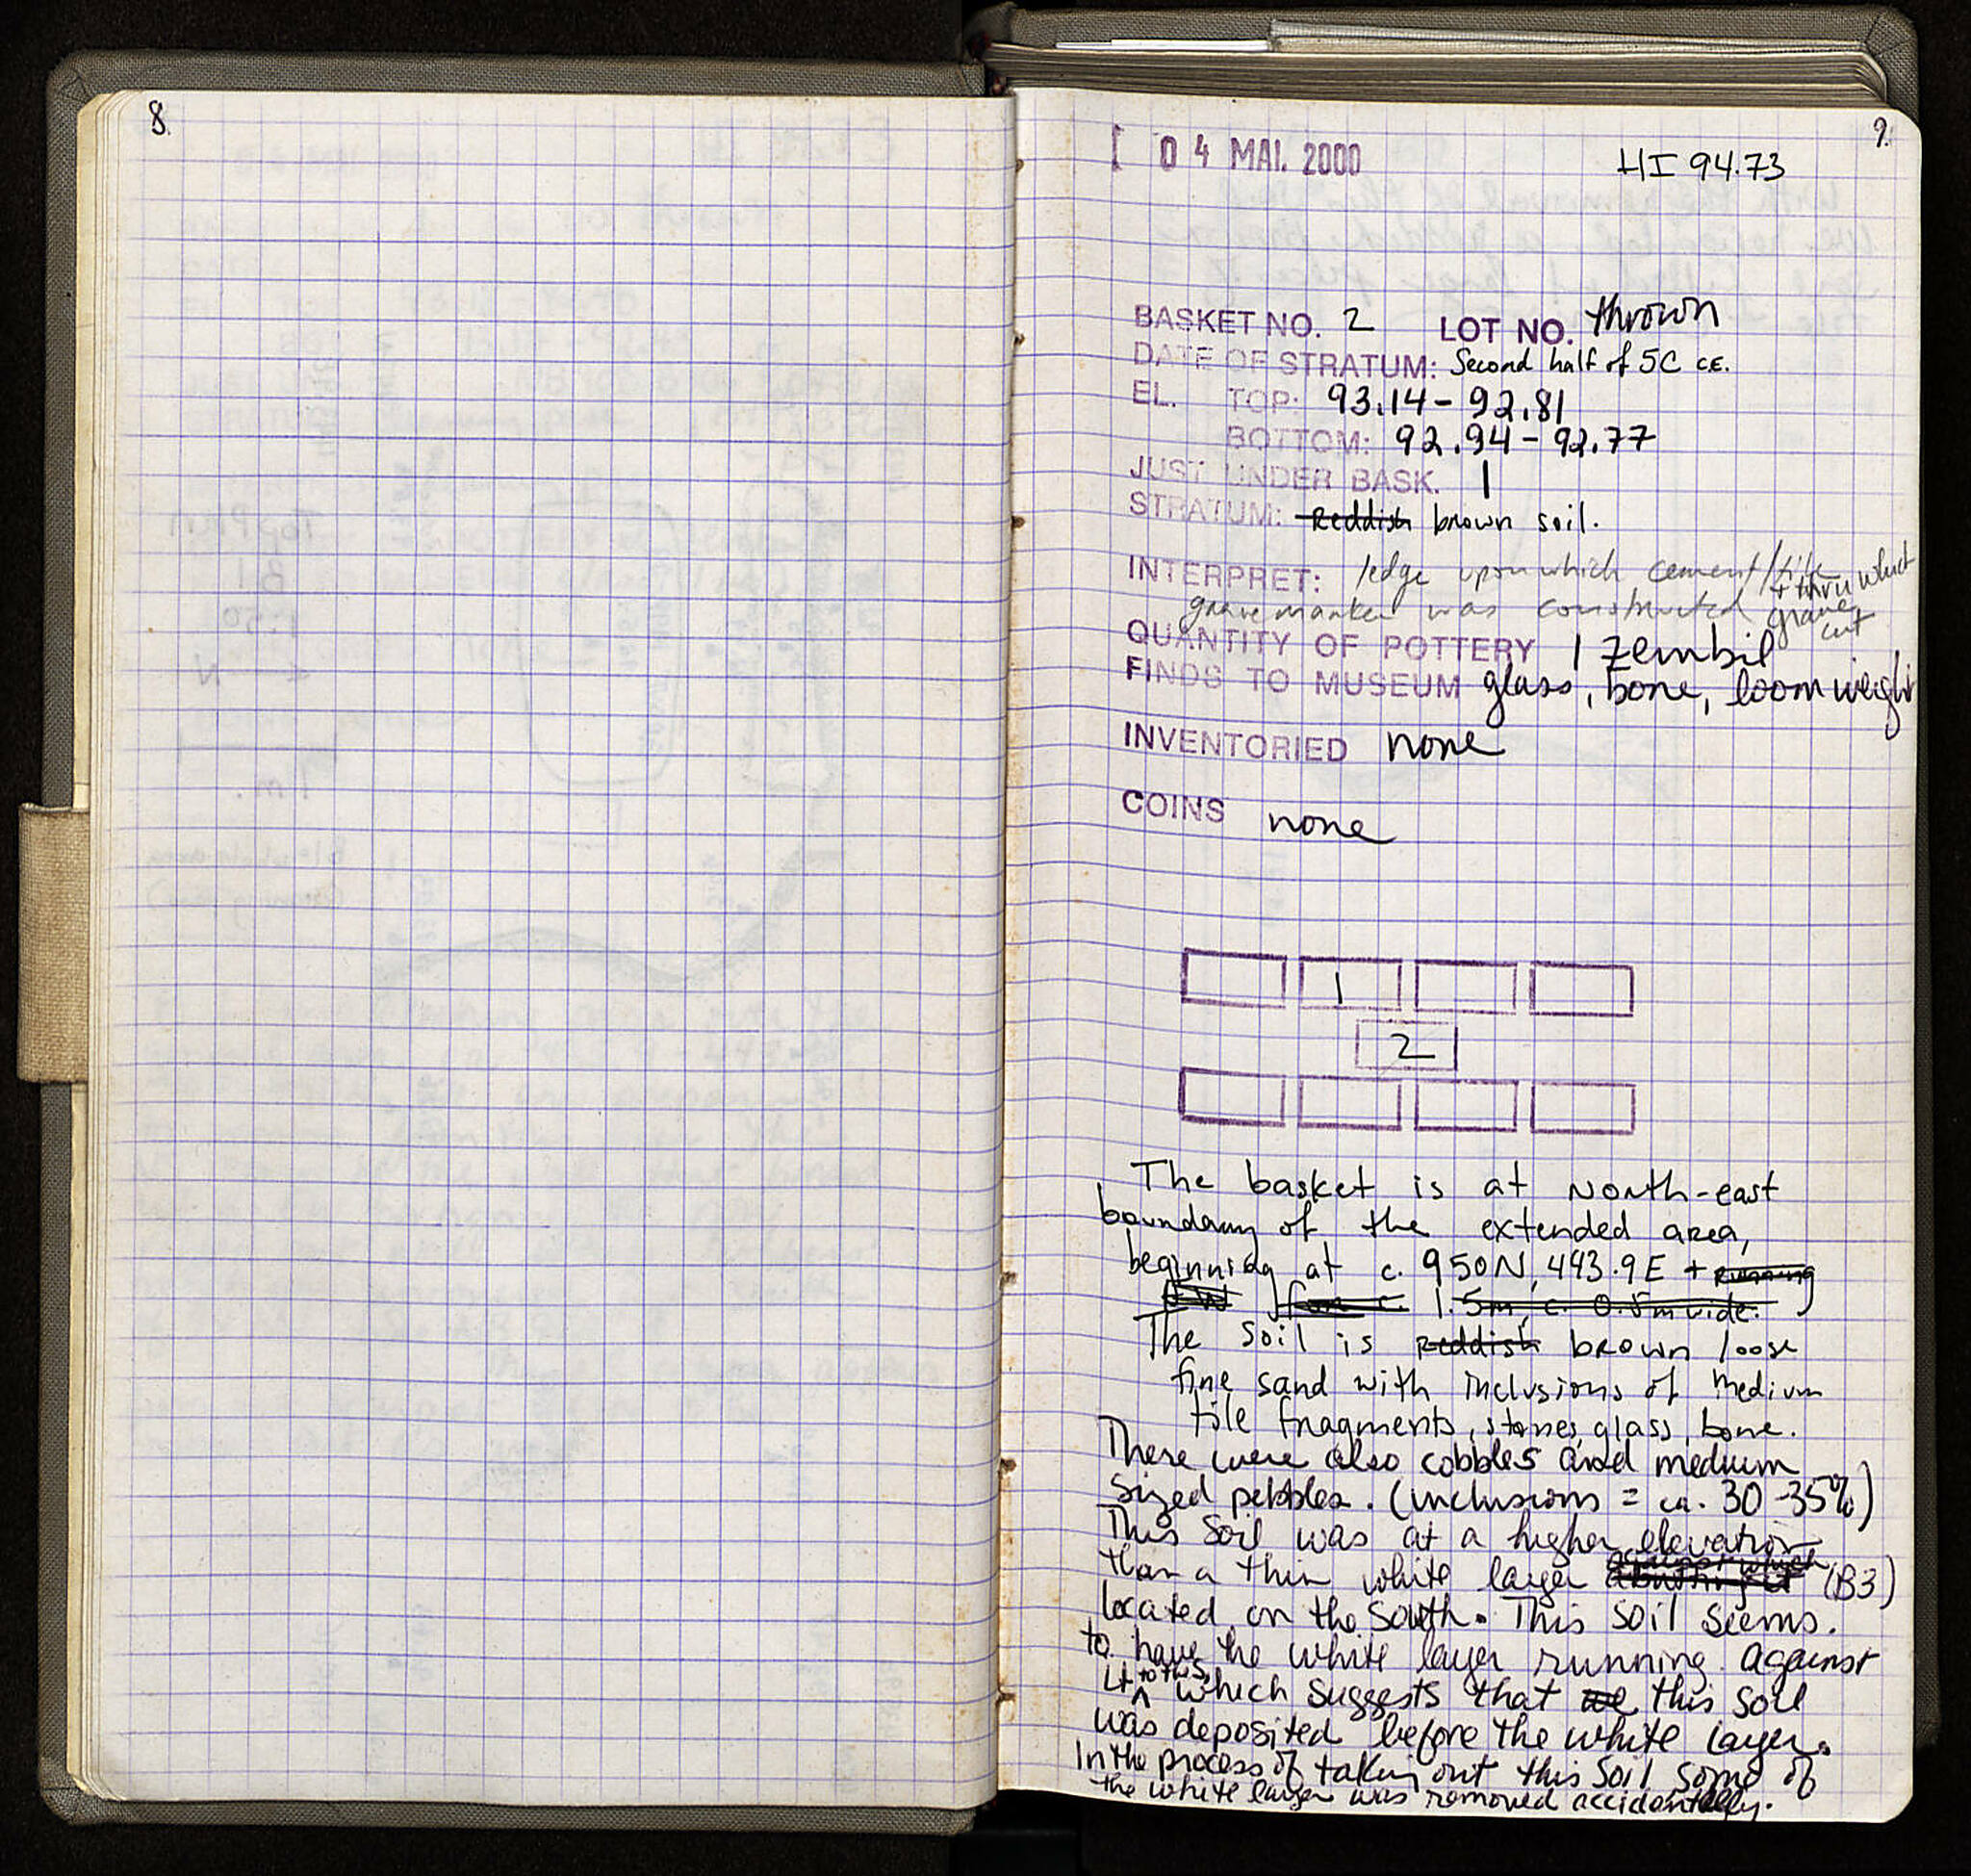 8.
9.
[ 04 MAI. 2000 HI 94.73
BASKET NO. 2 LOT NO. thrown
DATE OF STRATUM: Second half of 5C CE.
EL. TOP: 93.14 - 92.81
BOTTOM: 92.94 - 92.77
JUST UNDER BASK. 1
STRATUM: Reddish brown soil.
INTERPRET: ledge upon which cement/tile
+ thru which
grave marker was constructed grave
cut
QUANTITY OF POTTERY 1 zembil
FINDS TO MUSEUM glass, bone, loomweight
INVENTORIED none
COINS none
1
2
The basket is at North-east
boundary of the extended area,
beginning at c. 950N, 493.9E + running
EW for c. 1.5m, c. 0.5m wide.
The soil is reddish brown loose
fine sand with inclusions of medium
tile fragments, stones, glass, bone.
There were also cobbles and medium
sized pebbles. (inclusions = ca. 30-35%)
This soil was at a higher elevation
against which
than a thin white layer (B3)
located on the south. This soil seems
to have the white layer running against
it to the S, which suggests that this soil
was deposited before the white layer.
In the process of taking out this soil some of
the white layer was removed accidentally.